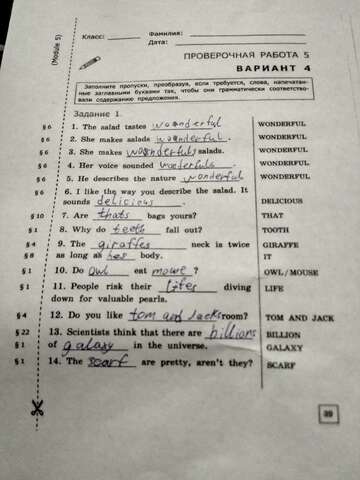 (Module 5)
Класс: Фамилия:
Дата:
ПРОВЕРОЧНАЯ РАБОТА 5
ВАРИАНТ 4
Заполните пропуски, преобразуя, если требуется, слова, напечатан-
ные заглавными буквами так, чтобы они грамматически соответство-
вали содержанию предложения.
Задание 1.
§ 6 1. The salad tastes woonderful WONDERFUL
§ 6 2. She makes salads woonderful. WONDERFUL
§ 6 3. She makes wonderfuls salads. WONDERFUL
§ 6 4. Her voice sounded wonderfuls. WONDERFUL
§ 6 5. He describes the nature wonderful WONDERFUL
§ 6 6. I like the way you describe the salad. It
sounds delicious. DELICIOUS
§ 10 7. Are thats bags yours? THAT
§ 1 8. Why do teeth fall out? TOOTH
§ 4 9. The giraffes neck is twice GIRAFFE
§ 8 as long as body. IT
§ 1 10. Do owl eat mowe? OWL/MOUSE
§ 1 11. People risk their lifes diving LIFE
down for valuable pearls.
§ 4 12. Do you like tom and Jacks room? TOM AND JACK
§ 22 13. Scientists think that there are billions BILLION
§ 1 of galaxy in the universe. GALAXY
§ 1 14. The scarf are pretty, aren't they? SCARF
39